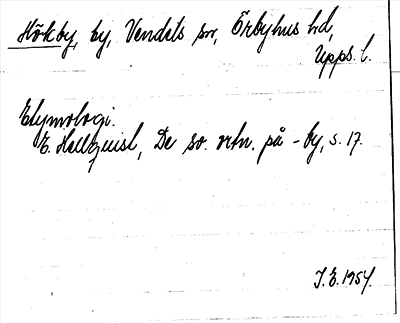 Hökby, by, Vendels sn, Örbyhus hd,
Upps. l.
Etymologi:
E. Hellquist, De sv. ortn. på -by, s. 17.
J.E. 1954.